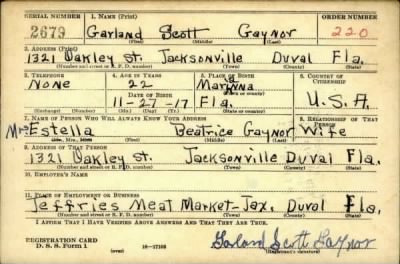 SERIAL NUMBER 1. NAME (Print) ORDER NUMBER
2679 Garland Scott Gaynor 220
(First) (Middle) (Last)
2. ADDRESS (Print)
1321 Oakley St. Jacksonville Duval Fla.
(Number and street or R. F. D. number) (Town) (County) (State)
3. TELEPHONE 4. AGE IN YEARS 5. PLACE OF BIRTH 6. COUNTRY OF CITIZENSHIP
None 22 Marianna
(Town or county)
DATE OF BIRTH
11-27-17 Fla. U.S.A.
(Exchange) (Number) (Mo.) (Day) (Yr.) (State or country)
7. NAME OF PERSON WHO WILL ALWAYS KNOW YOUR ADDRESS 8. RELATIONSHIP OF THAT PERSON
Mrs Estella Beatrice Gaynor Wife
(Mr., Mrs., Miss) (First) (Middle) (Last)
9. ADDRESS OF THAT PERSON
1321 Oakley St. Jacksonville Duval Fla.
(Number and street or R. F. D. number) (Town) (County) (State)
10. EMPLOYER'S NAME
11. PLACE OF EMPLOYMENT OR BUSINESS
Jeffries Meat Market-Jax. Duval Fla.
(Number and street or R. F. D. number) (Town) (County) (State)
I AFFIRM THAT I HAVE VERIFIED ABOVE ANSWERS AND THAT THEY ARE TRUE.
REGISTRATION CARD
D. S. S. Form 1 (over) 16-17105 Garland Scott Gaynor
(Registrant's signature)